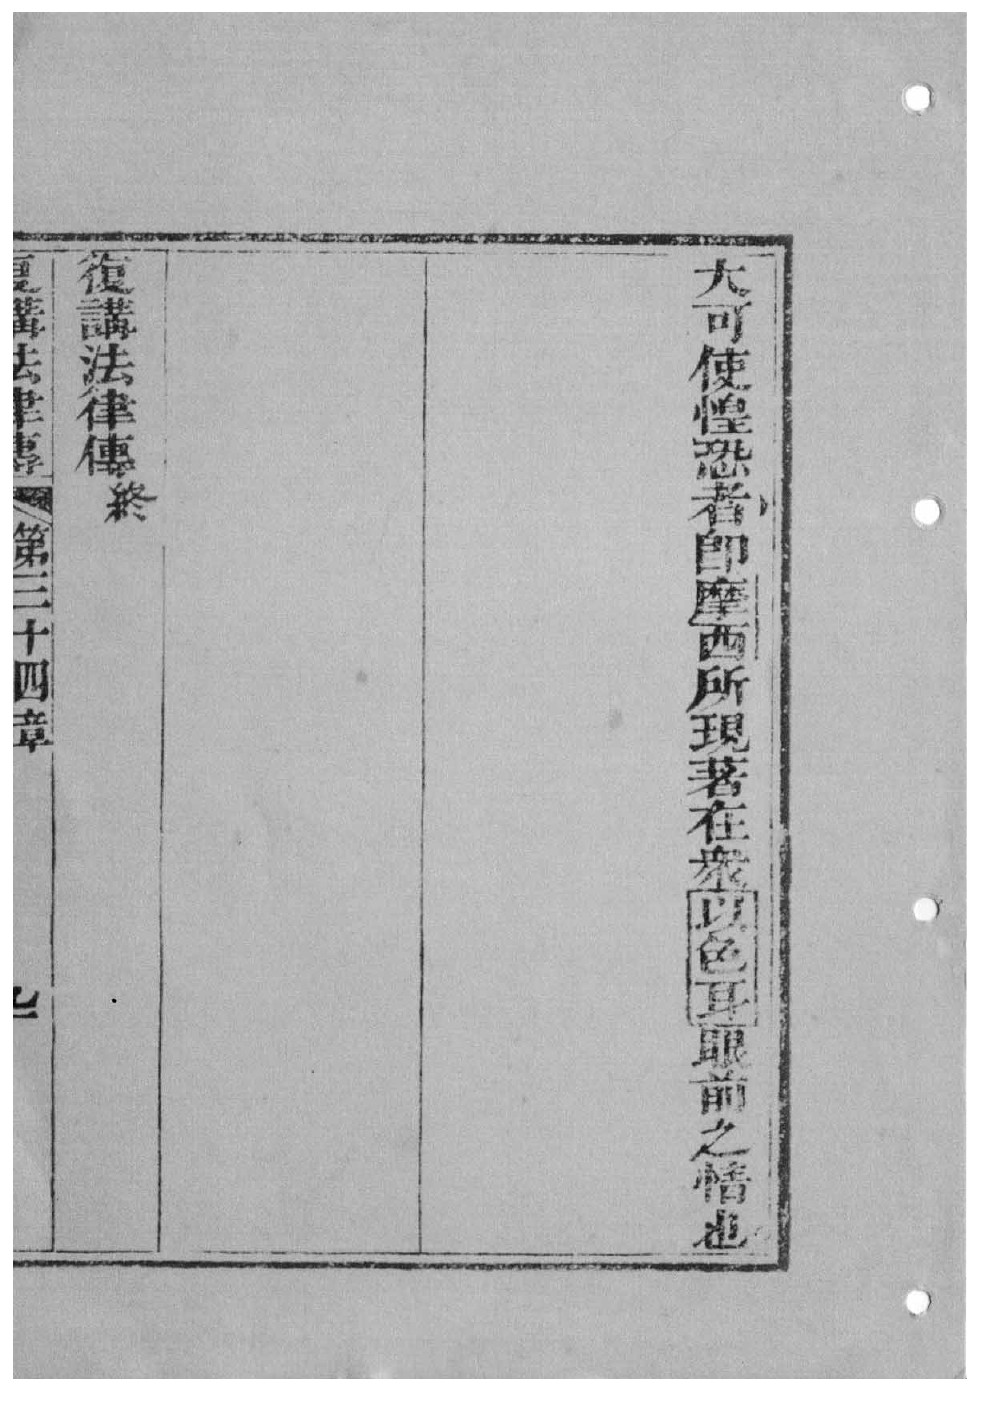 大可使惶恐者即摩西所現著在衆以色耳眼前之情也
復講法律傳終
復講法律傳 第三十四章